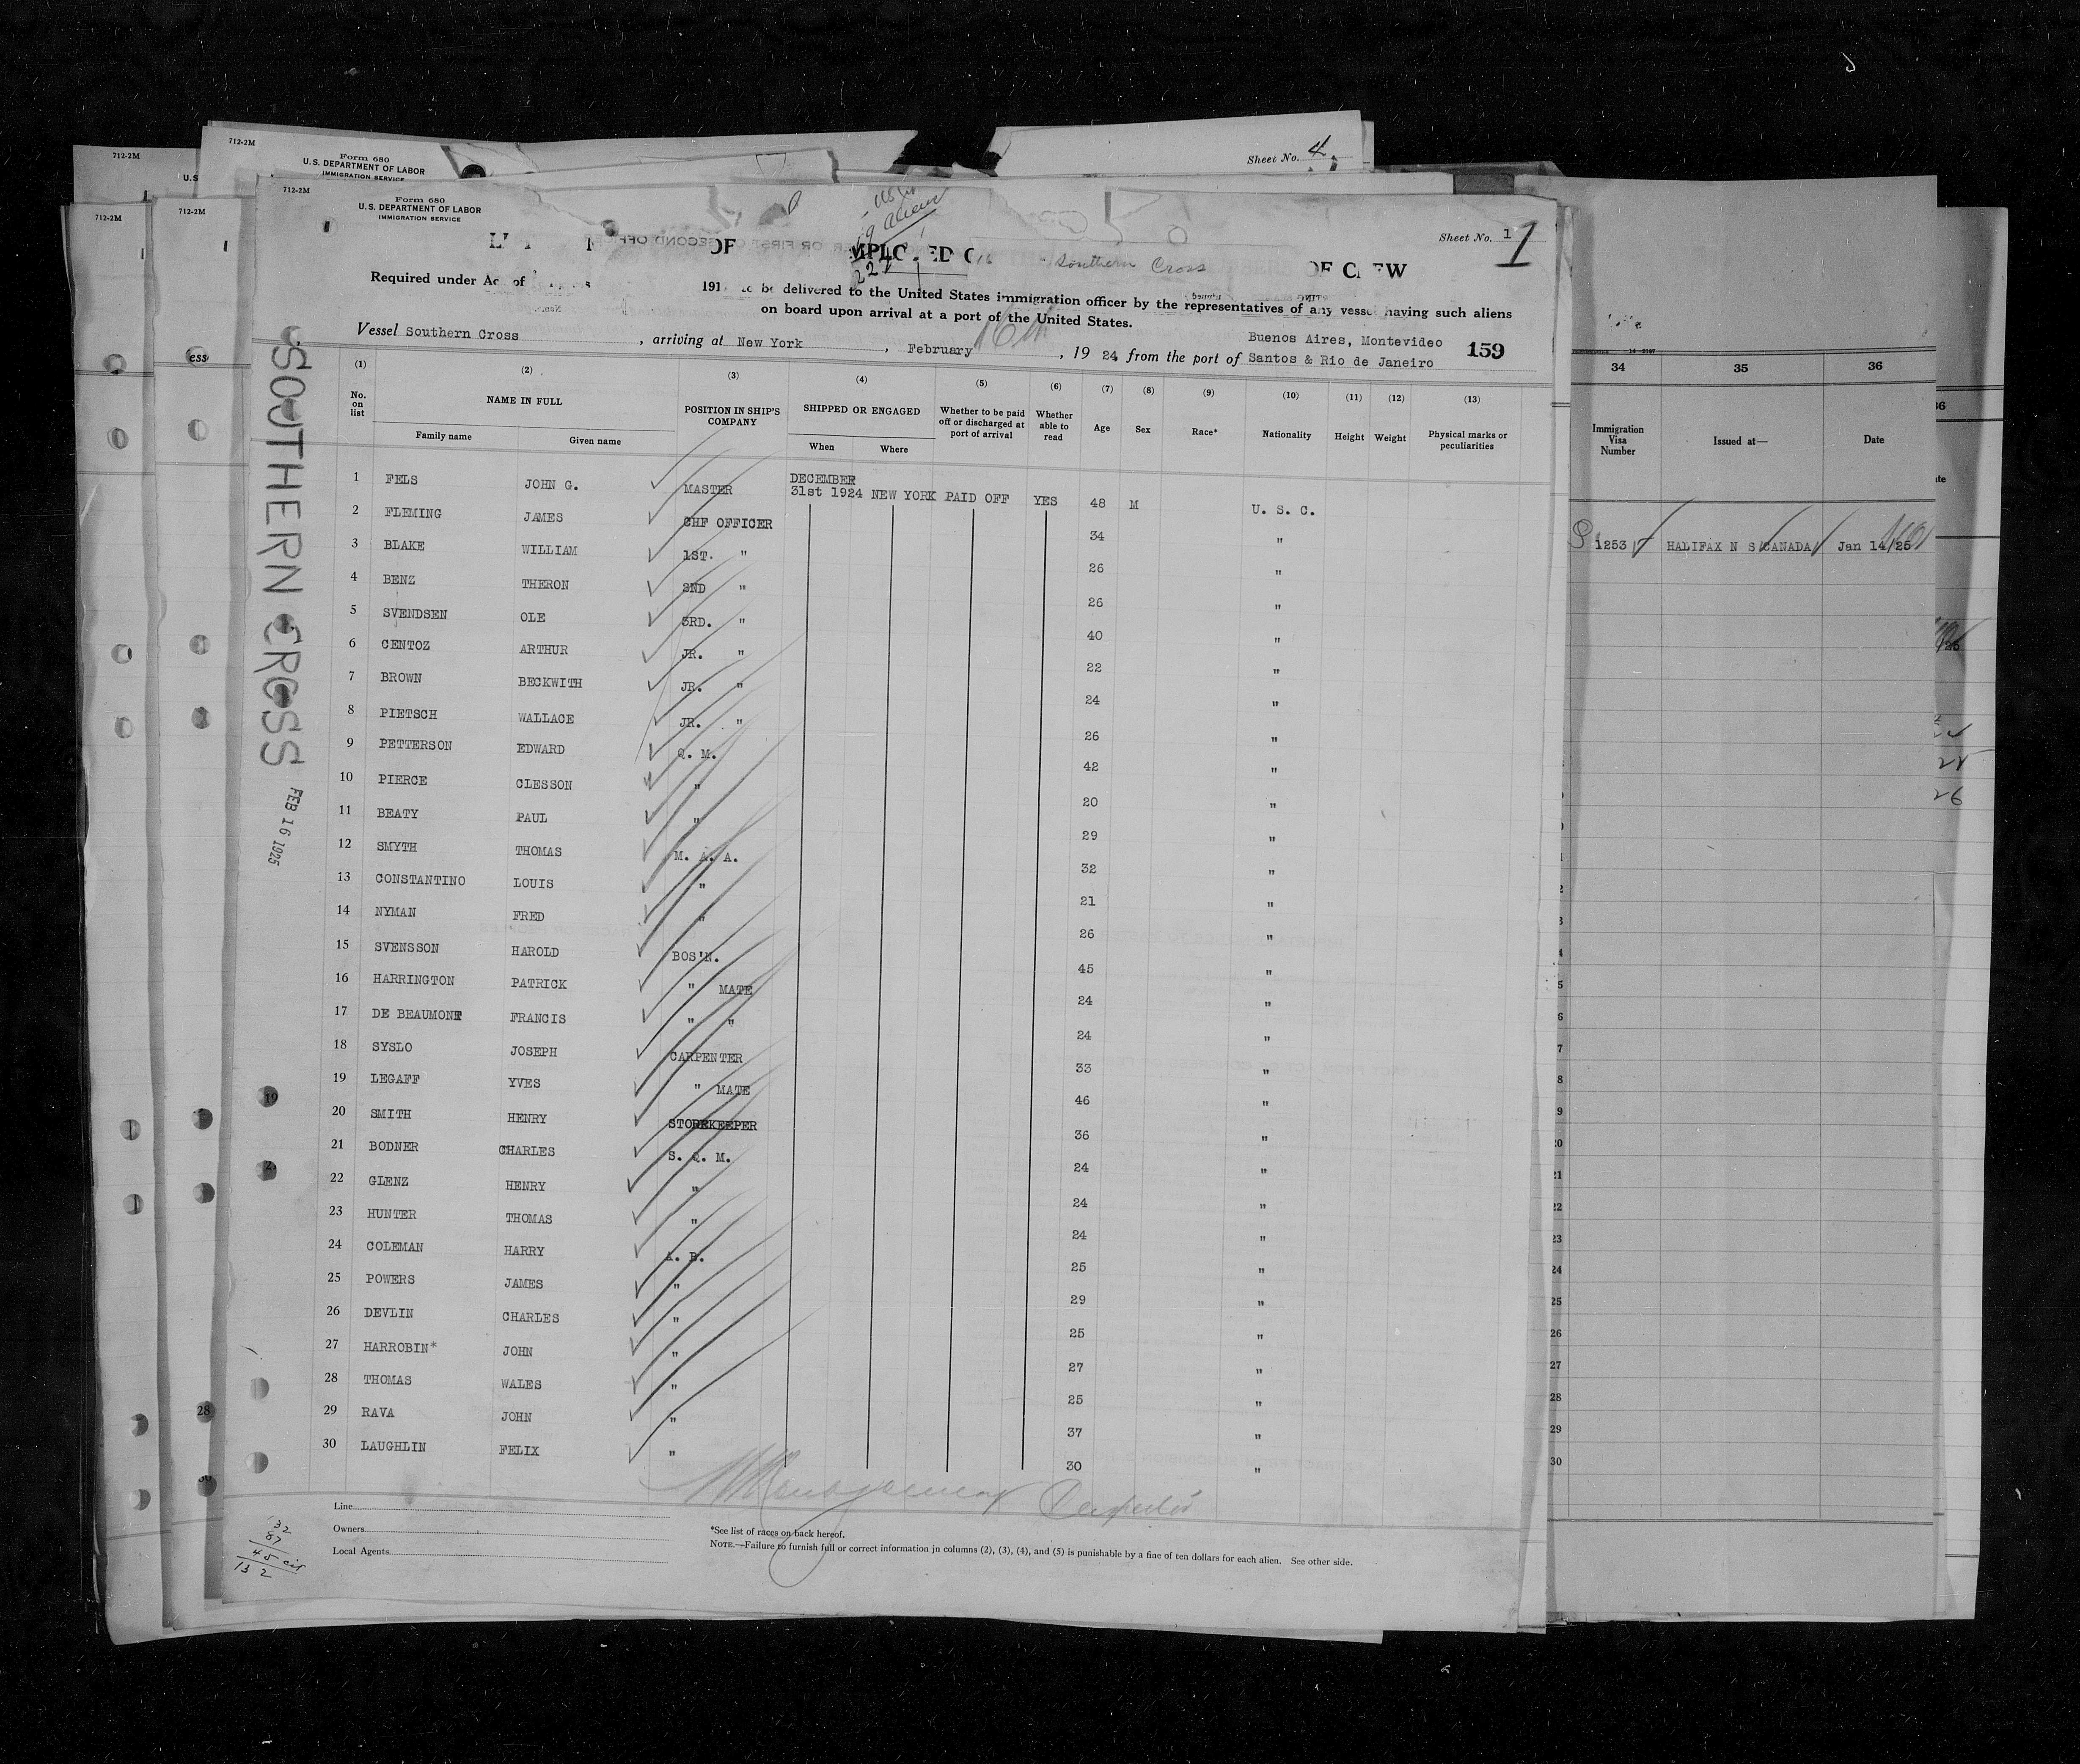 712-2M
712-2M
Form 680
U.S. DEPARTMENT OF LABOR
IMMIGRATION SERVICE
Sheet No. 4
U.S
712-2M
712-2M
712-2M
Form 680
U.S. DEPARTMENT OF LABOR
IMMIGRATION SERVICE
aliens
Sheet No. 1 1
OF MPLO ED Southern Cross OF C EW
Required under Ac of 191 to be delivered to the United States immigration officer by the representatives of any vessel having such aliens
on board upon arrival at a port of the United States.
Vessel Southern Cross, arriving at New York, February 16th, 1924 from the port of Buenos Aires, Montevideo Santos & Rio de Janeiro 159
SOUTHERN CROSS FEB 16 1925
(1) (2) (3) (4) (5) (6) (7) (8) (9) (10) (11) (12) (13)
No. on list NAME IN FULL POSITION IN SHIP'S COMPANY SHIPPED OR ENGAGED Whether to be paid off or discharged at port of arrival Whether able to read Age Sex Race* Nationality Height Weight Physical marks or peculiarities
Family name Given name When Where
1 FELS JOHN G. MASTER DECEMBER 31st 1924 NEW YORK PAID OFF YES 48 M U. S. C.
2 FLEMING JAMES CHF OFFICER 34 "
3 BLAKE WILLIAM 1ST. " 26 "
4 BENZ THERON 2ND " 26 "
5 SVENDSEN OLE 3RD. " 40 "
6 CENTOZ ARTHUR JR. " 22 "
7 BROWN BECKWITH JR. " 24 "
8 PIETSCH WALLACE JR. " 26 "
9 PETTERSON EDWARD Q. M. 42 "
10 PIERCE CLESSON " 20 "
11 BEATY PAUL " 29 "
12 SMYTH THOMAS M. A. A. 32 "
13 CONSTANTINO LOUIS " 21 "
14 NYMAN FRED " 26 "
15 SVENSSON HAROLD BOS'N. 45 "
16 HARRINGTON PATRICK " MATE 24 "
17 DE BEAUMONT FRANCIS " " 24 "
18 SYSLO JOSEPH CARPENTER 33 "
19 LEGAFF YVES " MATE 46 "
20 SMITH HENRY STOREKEEPER 36 "
21 BODNER CHARLES S. Q. M. 24 "
22 GLENZ HENRY " 24 "
23 HUNTER THOMAS " 24 "
24 COLEMAN HARRY A. B. 25 "
25 POWERS JAMES " 29 "
26 DEVLIN CHARLES " 25 "
27 HARROBIN* JOHN " 27 "
28 THOMAS WALES " 25 "
29 RAVA JOHN " 37 "
30 LAUGHLIN FELIX " 30 "
Line
Owners
Local Agents
*See list of races on back hereof.
NOTE.—Failure to furnish full or correct information in columns (2), (3), (4), and (5) is punishable by a fine of ten dollars for each alien. See other side.
132
87
45 cit
132
34 35 36
Immigration Visa Number Issued at— Date
1253 HALIFAX N S CANADA Jan 14/25
20
21
22
23
24
25
26
27
28
29
30